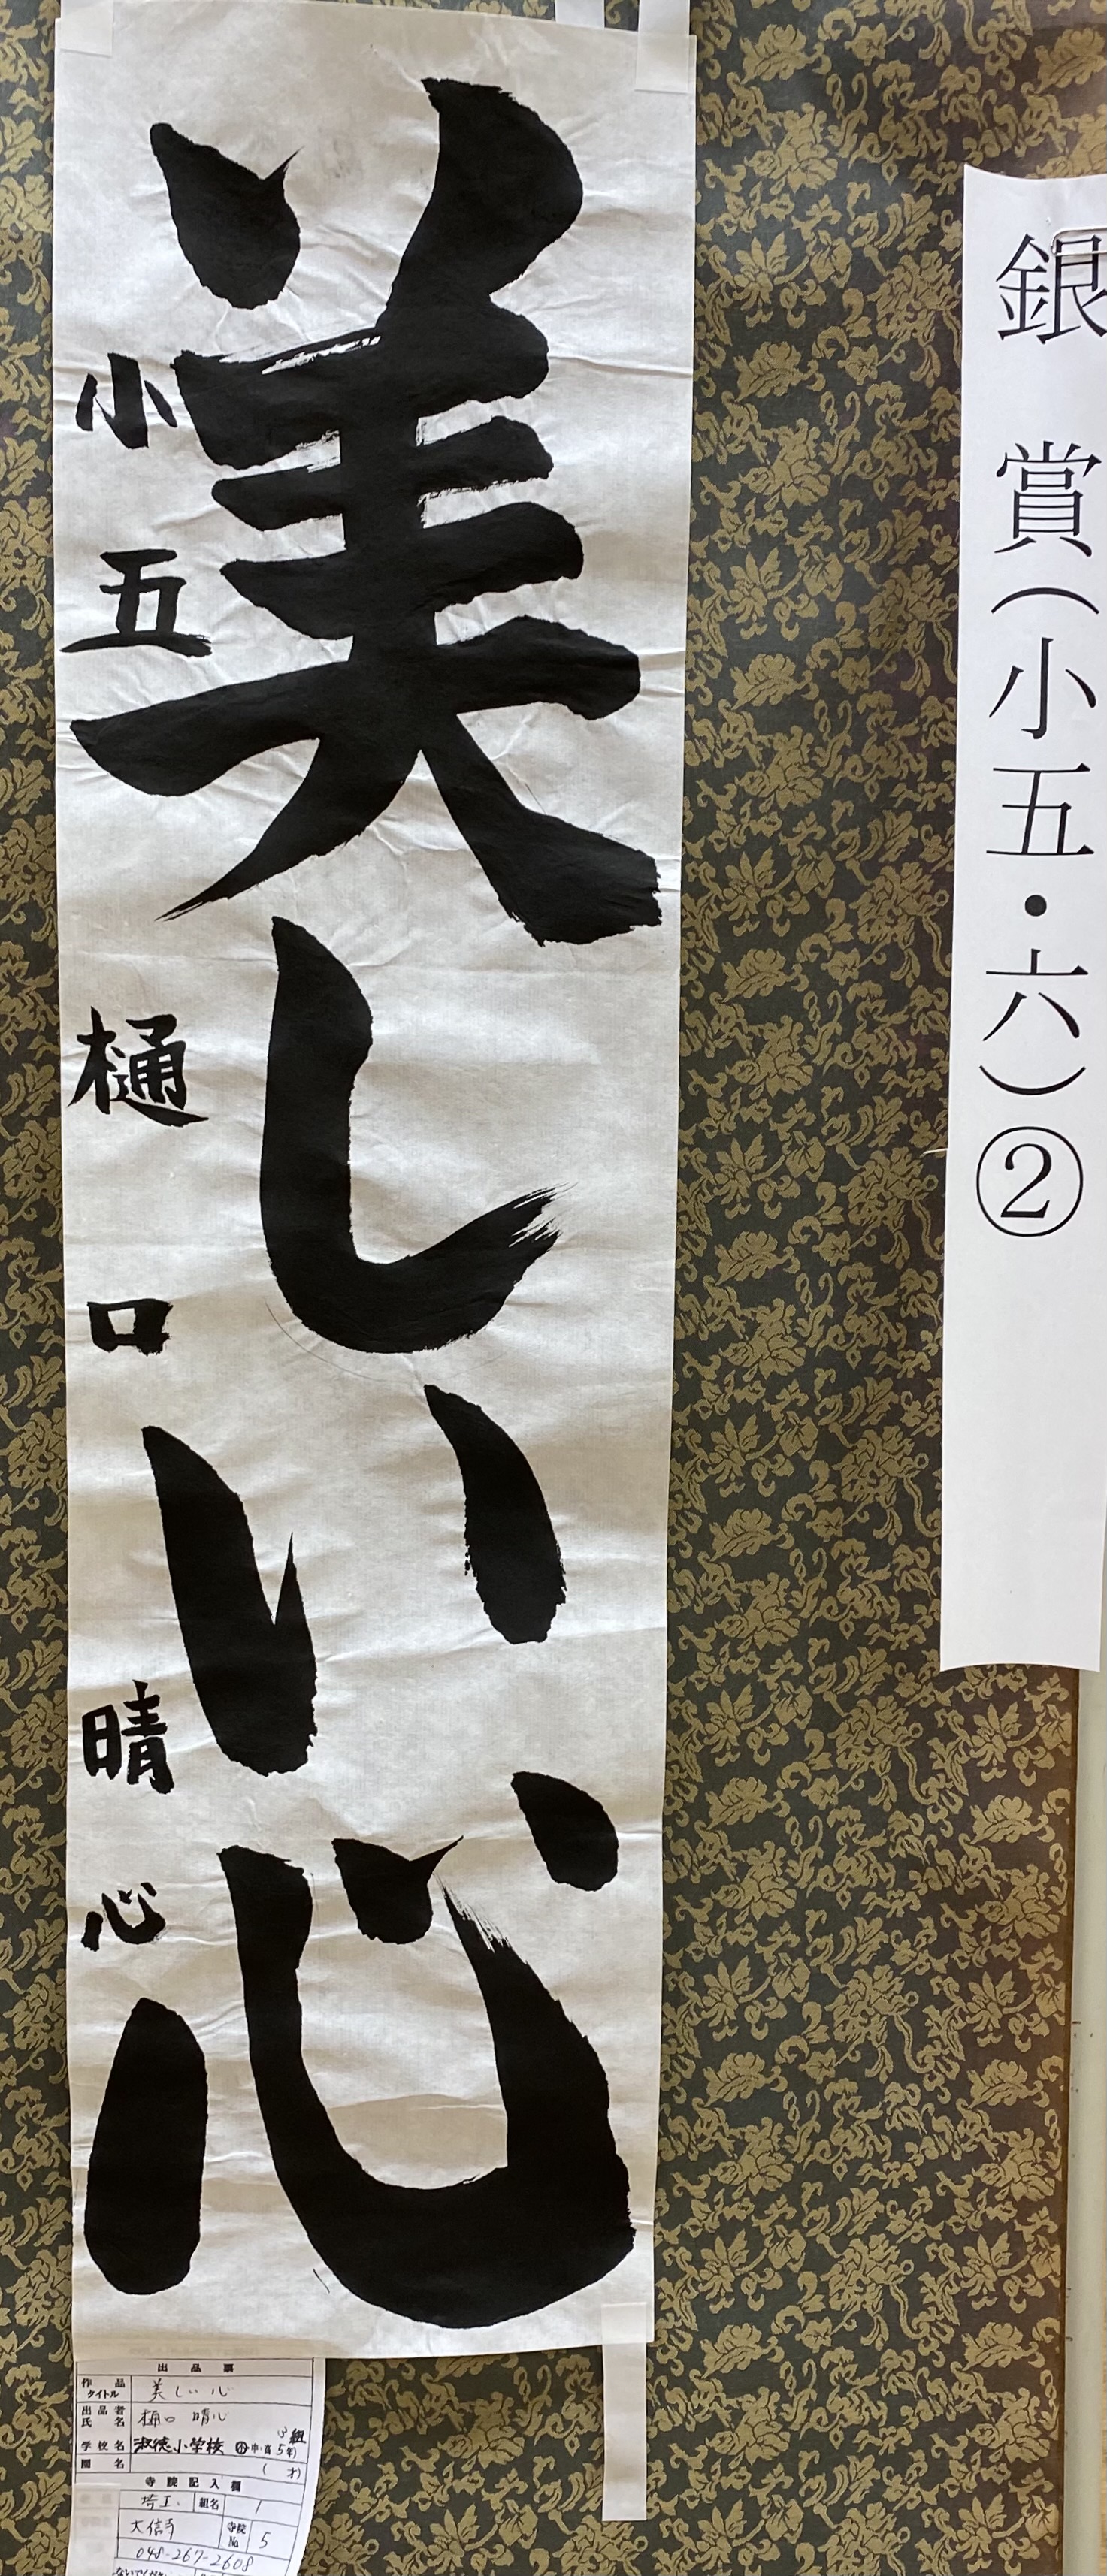 銀賞(小五・六)②
美しい心
小五 樋口晴心
出品票
作品タイトル 美しい心
出品者氏名 樋口 晴心
学校名 淑徳小学校 小・中・高 5年 組
園名 (才)
寺院記入欄
埼玉 組名 1
大信寺 寺院No. 5
048-267-2608